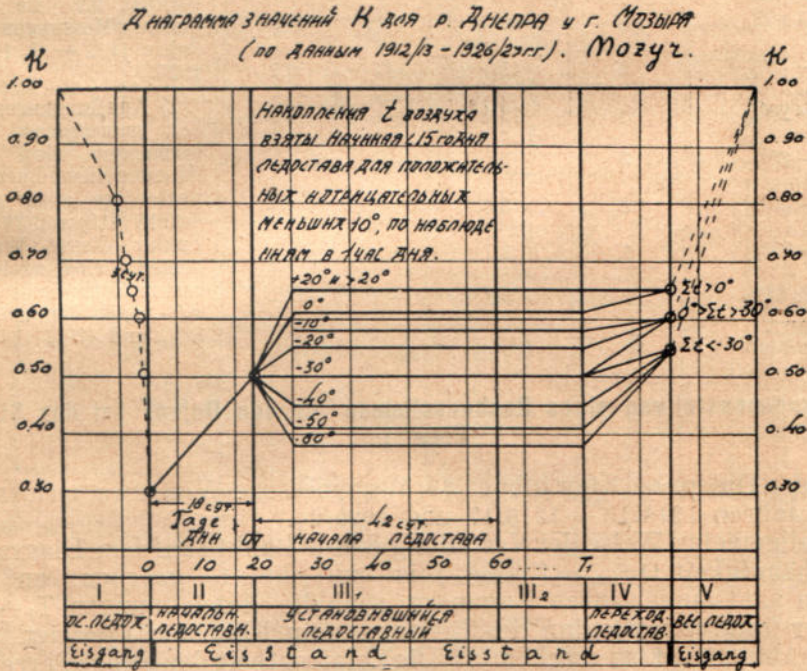 ДИАГРАММА ЗНАЧЕНИЙ К ДЛЯ Р. ДНЕПРА У Г. МОЗЫРЯ
(ПО ДАННЫМ 1912/13 - 1926/27 гг). Mozyr.
К К
1.00 1.00
0.90 0.90
0.80 0.80
0.70 0.70
0.60 0.60
0.50 0.50
0.40 0.40
0.30 0.30
НАКОПЛЕНИЯ t ВОЗДУХА
ВЗЯТЫ НАЧИНАЯ С 15 го ДНЯ
ЛЕДОСТАВА ДЛЯ ПОЛОЖАТЕЛЬ-
НЫХ И ОТРИЦАТЕЛЬНЫХ
МЕНЬШИХ 10°, ПО НАБЛЮДЕ
НИЯМ В 1 ЧАС ДНЯ.
сут.
+20° и >20°
0°
-10°
-20°
-30°
-40°
-50°
-60°
Σt>0°
0°>Σt>-30°
Σt<-30°
18 сут. 42 сут.
Tage
ДНИ ОТ НАЧАЛА ЛЕДОСТАВА
0 10 20 30 40 50 60 ..... T₁
I II III₁ III₂ IV V
ОС. ЛЕДОХ. НАЧАЛЬН. ЛЕДОСТАВН. УСТАНОВИВШИЙСЯ ЛЕДОСТАВНЫЙ ПЕРЕХОД. ЛЕДОСТАВ. ВЕС. ЛЕДОХ.
Eisgang Eisstand Eisstand Eisgang